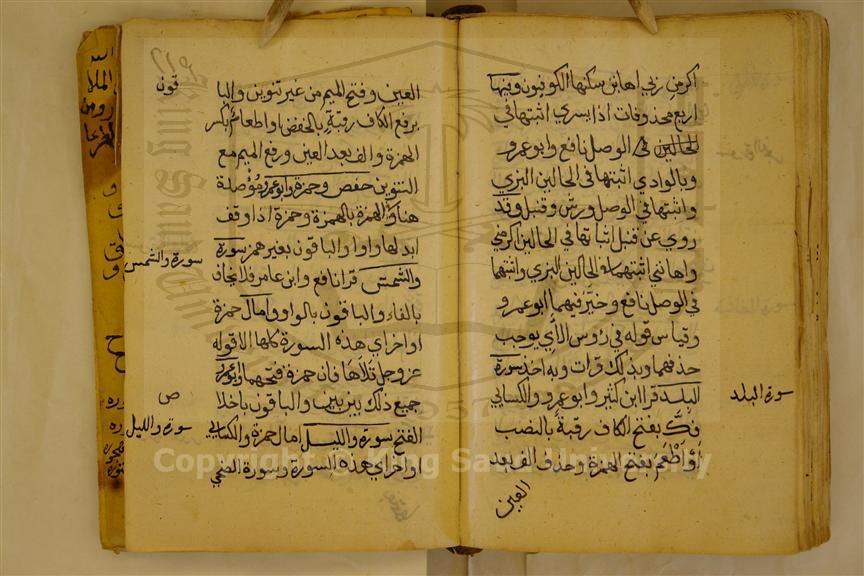 اكرمن ربي اهانن سكنها الكوفيون وفيها
اربع محذوفات اذا يسري اثبتها في
الحالين في الوصل نافع وابو عمرو
وبالوادي اثبتها في الحالين البزي
واثبتها في الوصل ورش وقنبل وقد
روي عن قنبل اثباتها في الحالين اكرمني
واهانني اثبتهما في الحالين البزي واثبتهما
في الوصل نافع وخير فيهما ابو عمرو
وقياس قوله في روس الآي يوجب
حذفهما وبذلك قرات وبه اخذ سورة
البلد قرا ابن كثير وابو عمرو والكسائي
فكَّ بفتح الكاف رقبةً بالنصب
أَوْ أَطْعَمَ بفتح الهمزة وحذف الف بعد
العين
سورة البلد
العين وفتح الميم من غير تنوين والبا
قون
برفع الكاف رقبةٍ بالخفض او اطعامٌ بكسر
الهمزة والف بعد العين ورفع الميم مع
التنوين حفص وحمزة وابو عمرو مُؤْصدة
هنا وفي الهمزة بالهمزة وحمزة اذا وقف
ابدلها واوا والباقون بغير همز سورة
والشمس قرا نافع وابن عامر فلا يخاف
بالفاء والباقون بالواو وامال حمزة
اواخر اي هذه السورة كلها الا قوله
عز وجل تلاها فان حمزة فتحهما وابو عمرو
جميع ذلك بين بين والباقون باخلا
ص
الفتح سورة والليل امال حمزة والكسائي
اواخر اي هذه السورة وسورة الضحي
سورة والشمس
سورة والليل
Copyright © King Saud University
1957